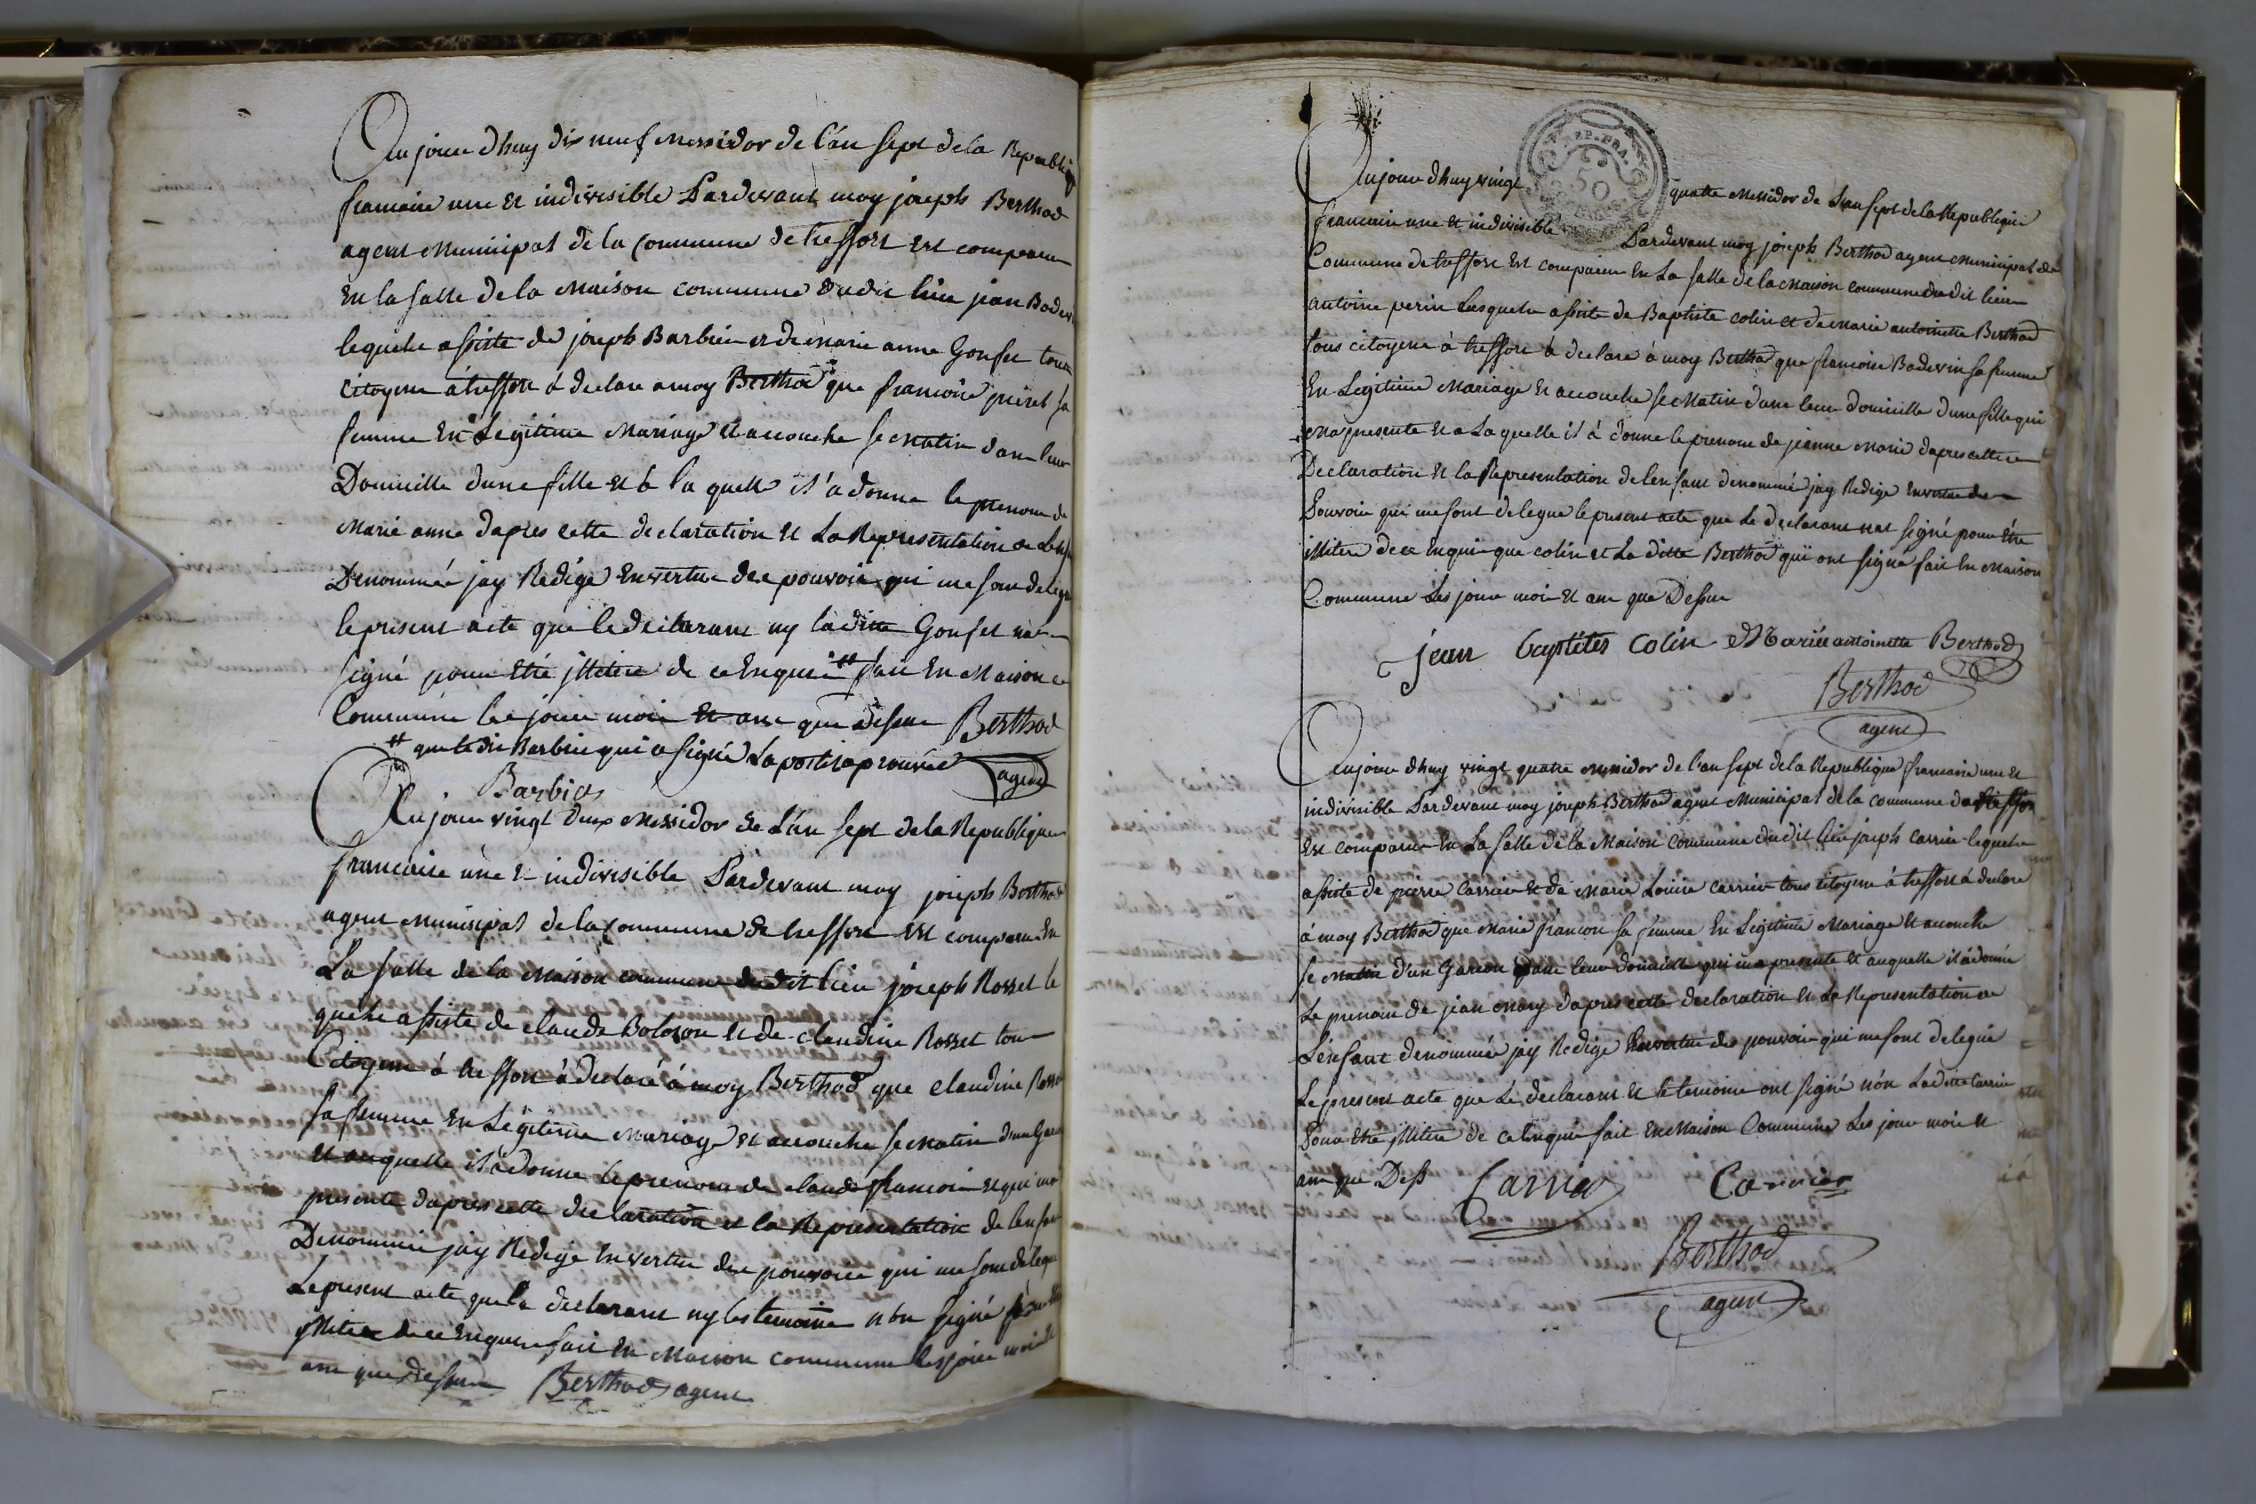 Aujourdhuy dix neuf Messidor de l'an sept de la Republiq
francaise une et indivisible Pardevant moy joseph Berthod
agent Municipal de la Commune de treffort est comparu
en la salle de la Maison commune dudit lieu jean Badev
lequelle assisté de joseph Barbier et de marie anne Gonfet tous
citoyens à treffort a declaré a moy Berthod que francoise
femme en Legitime Mariage est accouché ce Matin dans leur
Domicille dune fille et à laquelle il a donné le prenom de
Marie anne dapres cette declaration et la Representation de
Denommée jay Redigé en vertue des pouvoirs qui me sont delegu
le present acte que le declarant ny ladite Gonfet nà
signé pour etre illitéré de ce enquis # fait en Maison
Commune les jour mois et an que dessus Berthod
# que le dit Barbier qui a signé aprouvée agent
Barbier
Aujour vingt deux Messidor de L'an sept de la Republique
francaise une et indivisible Pardevant moy joseph Berthod
agent Municipal de la Commune de treffort est comparu En
La salle de la Maison commune dudit lieu joseph Rosset le
quelle assisté de claude et de claudine Rosset tous
Citoyens à treffort à declaré à moy Berthod que claudine Rosse
sa femme en Legitime Mariage est accouché ce Matin d'un
et auquelle il a donné le prenom de claude francois et qui ma
presenté dapres cette declaration et la Representation de lenfan
Denommé jay Redigé en vertue des pouvoirs qui me sont delegué
Le present acte que le declarant ny les temoins n'ont signé pour
illitéré de ce enquis fait en Maison commune les jour mois et
an que dessus Berthod agent
REP. FRA.
50
Aujourdhuy vingt quatre Messidor de L'an sept de la Republique
francaise une et indivisible Pardevant moy joseph Berthod agent Municipal de
Commune de treffort est comparu en La salle de la Maison commune du dit lieu
antoine perin Lesquelle assisté de Baptiste colin et de Marie antoinette Berthod
tous citoyens à treffort à declaré à moy Berthod que francoise Badevin sa femme
En Legitime Mariage et accouché ce Matin dans leur domicille dune fille qui
ma presenté et a La quelle il à donné le prenom de jeanne Marie dapres cette
Declaration et la Representation de lenfant denommé jay Redigé en vertue des
Pouvoirs qui me sont delegué le present acte que Le declarant nat signé pour être
illitéré de ce enquis que colin et La ditte Berthod qui ont signé fait En Maison
Commune Les jour mois et an que Dessus
jean baptistes Colin Mariee antoinette Berthod
Berthod
agent
Aujourdhuy vingt quatre Messidor de l'an sept de la Republique francaise une et
indivisible Pardevant moy joseph Berthod agent Municipal de la commune de treffort
Est comparu en La salle de la Maison commune dudit lieu joseph Carrier lequelle
assisté de pierre Carrier et de Marie Louise Carrier tous citoyens à treffort à declaré
à moy Berthod que Marie francon sa femme En Legitime Mariage et accouché
ce Matin d'un Garcon dans leur domicille qui ma presenté et auquelle il à donné
Le prenom de jean Mary dapres cette declaration et La Representation de
L'enfant denommée jay Redigé en vertue des pouvoirs qui me sont delegué
Le present acte que Le declarant et le temoins ont signé non Ladite Carrier
Pour etre illitéré de ce enquis fait en Maison Commune Les jour mois et
an que Dess
Carrier Carrier
Berthod
agent